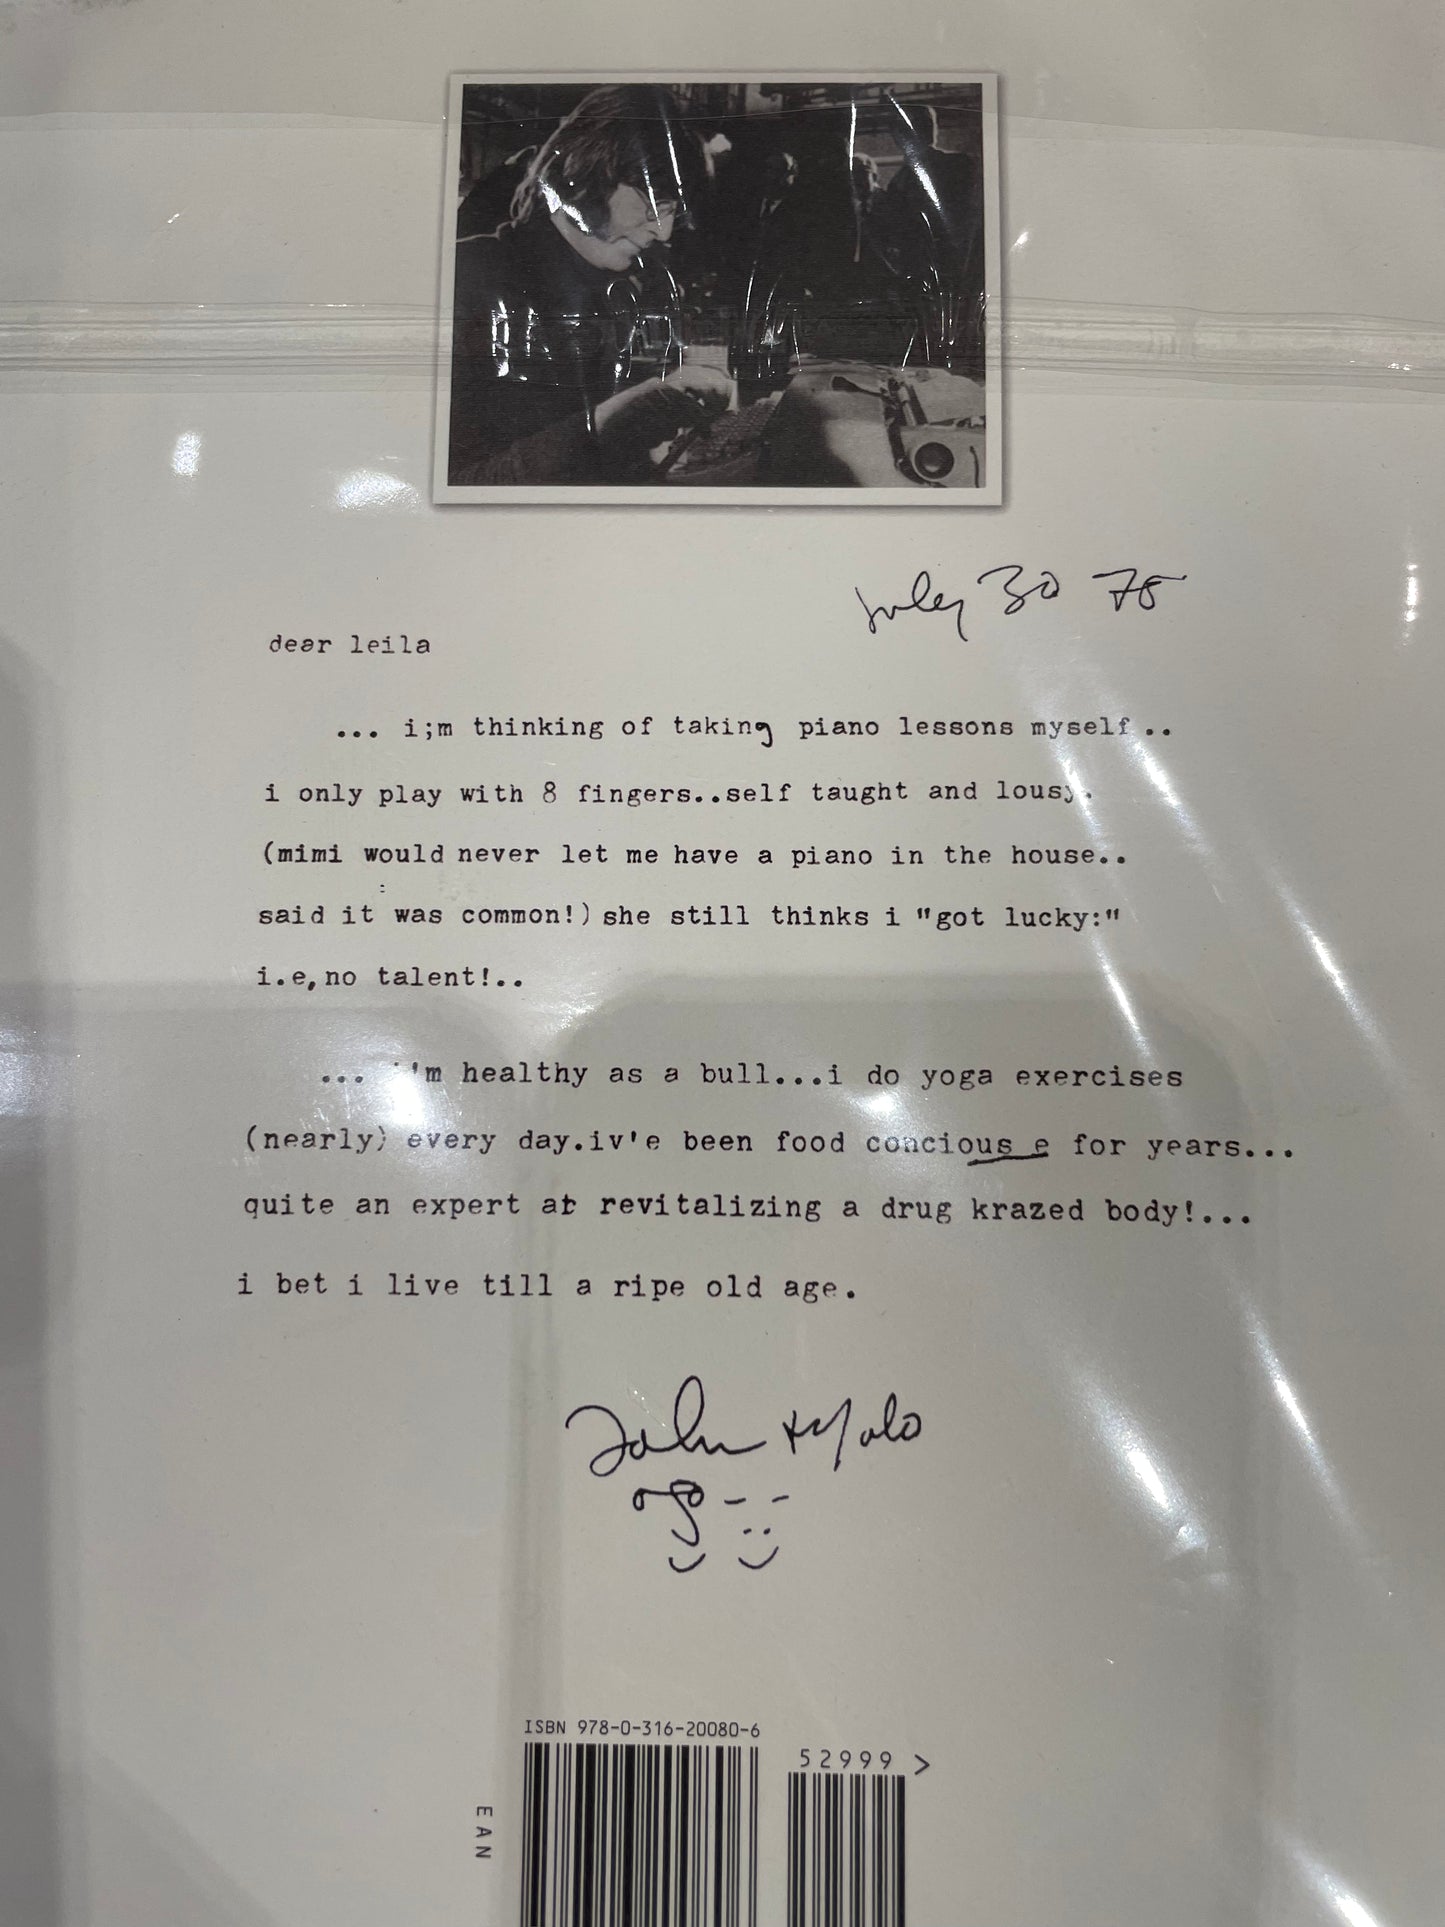 July 30 75
dear leila
... i;m thinking of taking piano lessons myself..
i only play with 8 fingers..self taught and lousy.
(mimi would never let me have a piano in the house..
said it was common!) she still thinks i "got lucky:"
i.e,no talent!..
... i'm healthy as a bull...i do yoga exercises
(nearly) every day.iv'e been food concious e for years...
quite an expert at revitalizing a drug krazed body!...
i bet i live till a ripe old age.
John
ISBN 978-0-316-20080-6
52999 >
EAN